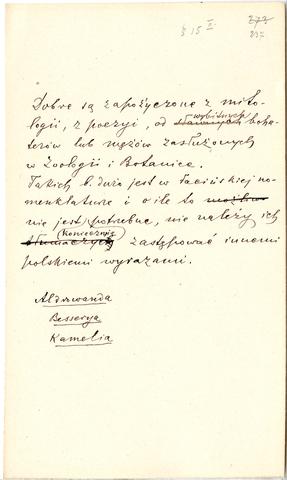 § 15 II
277
237
Dobre są zapożyczone z mito-
logii, z poezyi, od sławnych wybitnych boha-
terów lub mężów zasłużonych
w Zoologii i Botanice.
Takich b. dużo jest w łacińskiej no-
menklaturze i o ile to możliwe
nie jest koniecznie potrzebne, nie należy ich
tłumaczyć zastępować innemi
polskiemi wyrazami.
Aldrowanda
Besserya
Kamelia